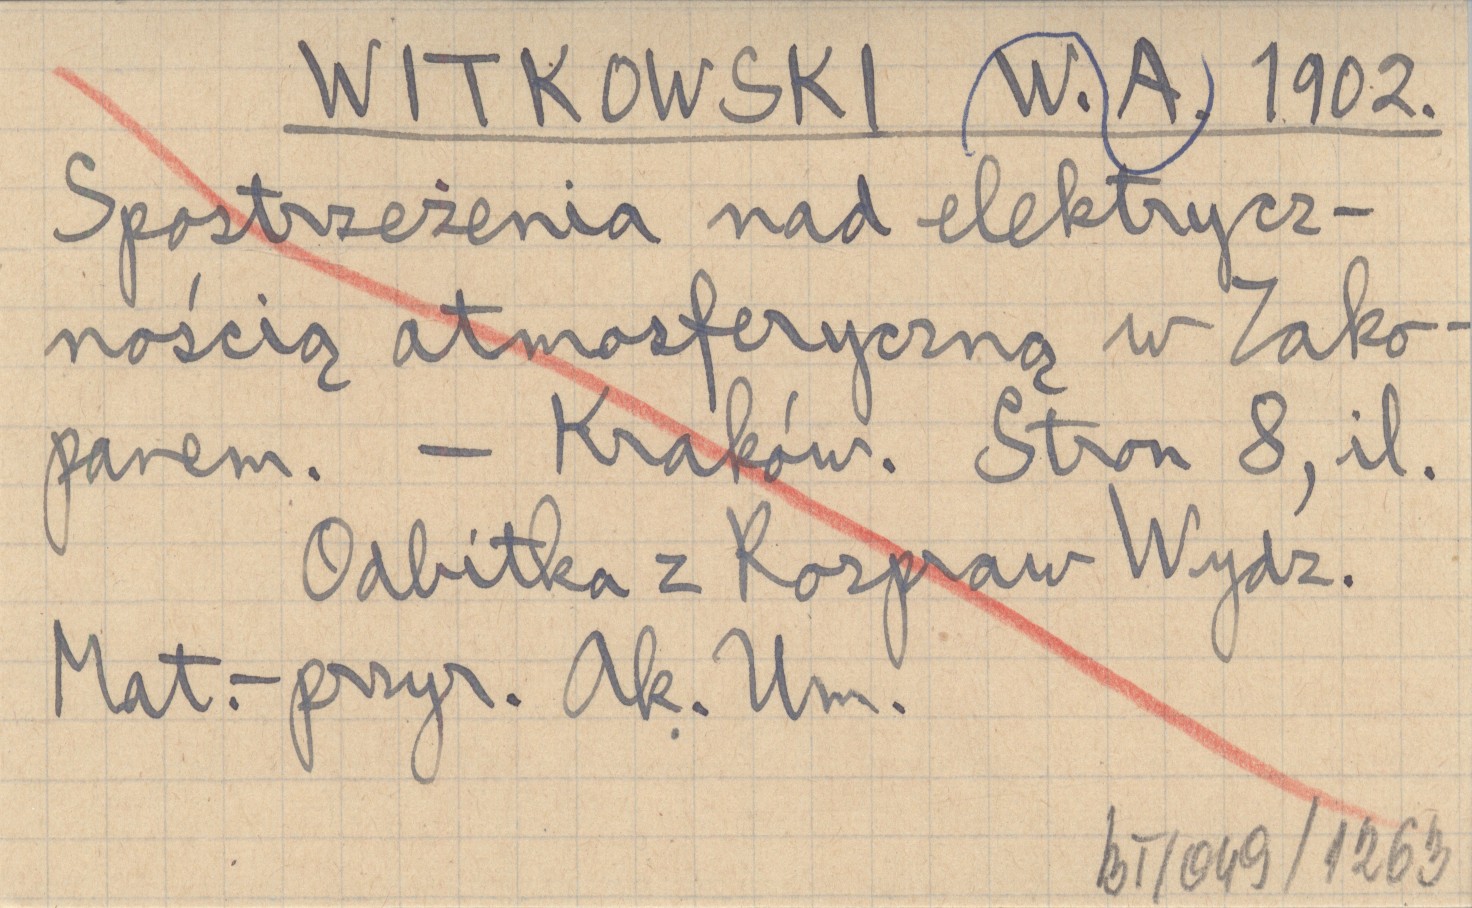 WITKOWSKI W. A. 1902.
Spostrzeżenia nad elektrycz-
nością atmosferyczną w Zako-
panem. — Kraków. Stron 8, il.
Odbitka z Rozpraw Wydz.
Mat.-przyr. Ak. Um.
BT/049/1263